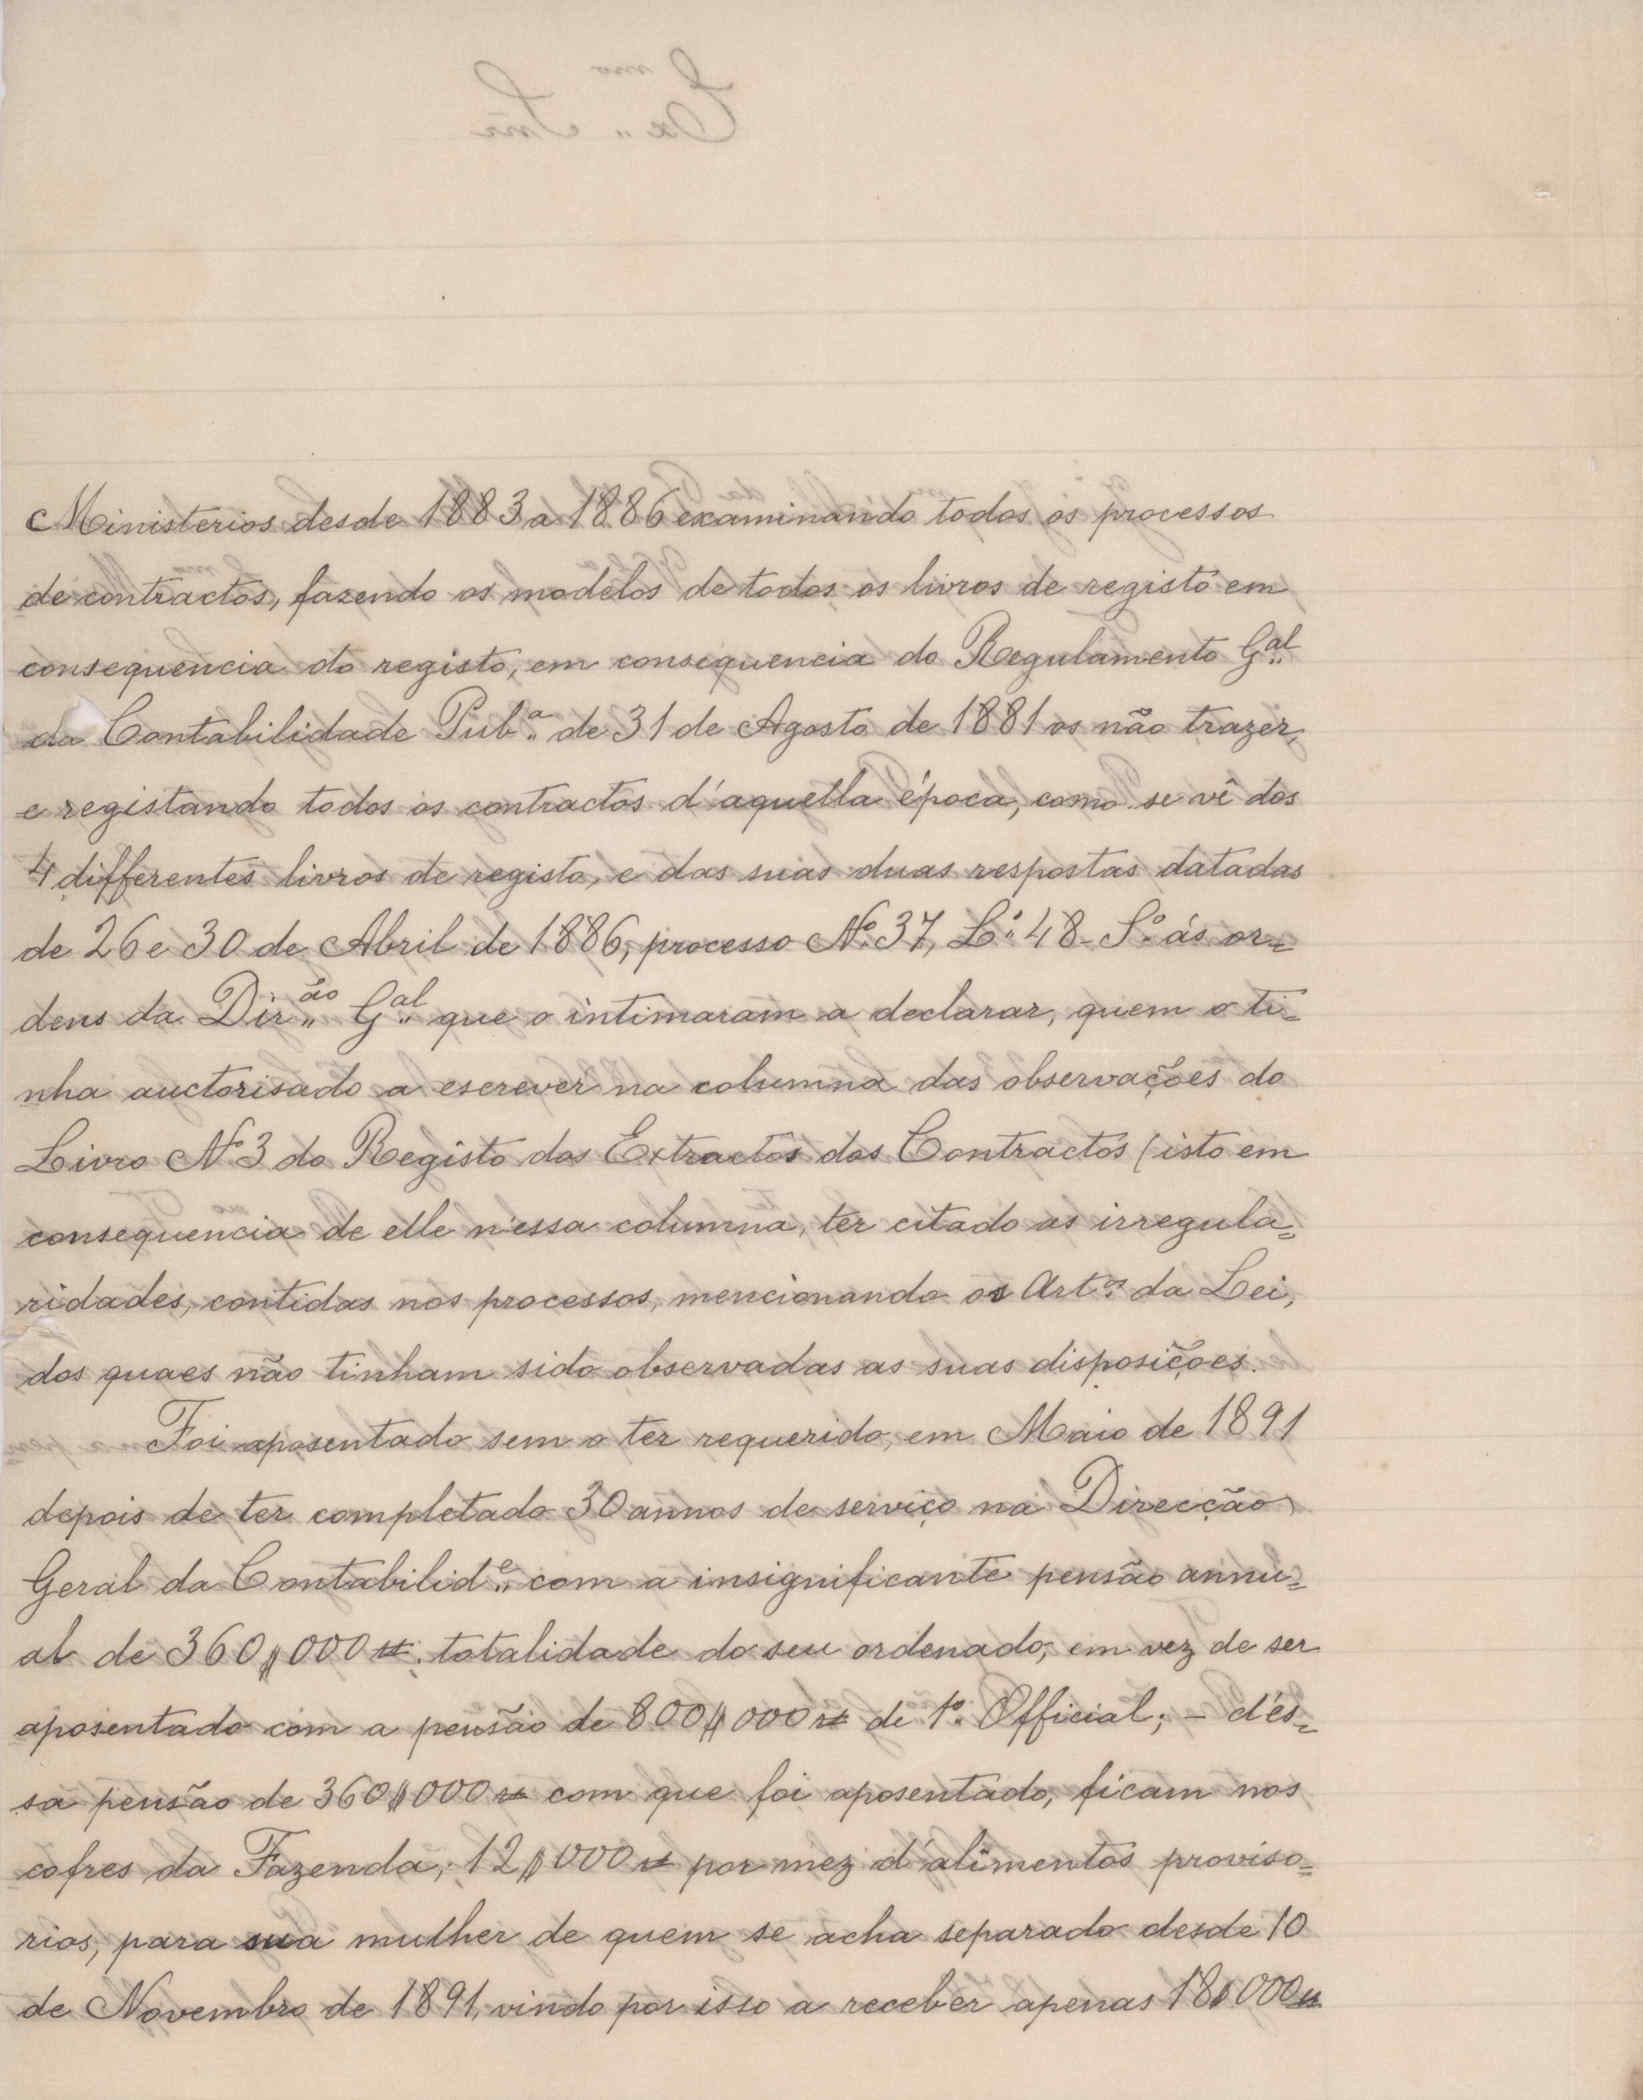 Ministerios desde 1883 a 1886 examinando todos os processos
de contractos, fazendo os modelos de todos os livros de registo em
consequencia do registo, em consequencia do Regulamento G.al
da Contabilidade Pub.a de 31 de Agosto de 1881 os não trazer,
e registando todos os contractos d'aquella época, como se vê dos
4 differentes livros de registo, e das suas duas respostas datadas
de 26 e 30 de Abril de 1886, processo Nº 37, Lº 48 - Sº ás or=
dens da Dir.ão G.al que o intimaram a declarar, quem o ti=
nha auctorisado a escrever na columna das observações do
Livro Nº 3 do Registo dos Extractos dos Contractos (isto em
consequencia de elle n'essa columna, ter citado as irregula=
ridades, contidas nos processos, mencionando os Art.os da Lei,
dos quaes não tinham sido observadas as suas disposições.
Foi aposentado sem o ter requerido, em Maio de 1891
depois de ter completado 30 annos de serviço na Direcção
Geral da Contabilid.e com a insignificante pensão annu=
al de 360$000 rs. totalidade do seu ordenado, em vez de ser
aposentado com a pensão de 800$000 rs de 1º Official; - d'és=
sa pensão de 360$000 rs com que foi aposentado, ficam nos
cofres da Fazenda, 12$000 rs por mez d'alimentos proviso=
rios, para sua mulher de quem se acha separado desde 10
de Novembro de 1891, vindo por isso a receber apenas 18$000 rs